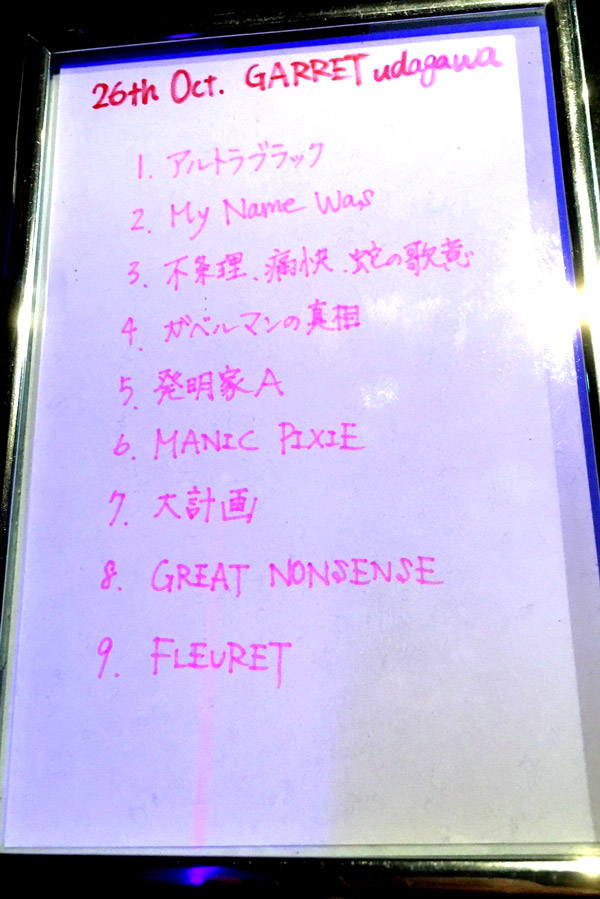 26th Oct. GARRET udagawa
1. アルトラブラック
2. My Name Was
3. 不条理、痛快、蛇の歌意
4. ガベルマンの真相
5. 発明家A
6. MANIC PIXIE
7. 大計画
8. GREAT NONSENSE
9. FLEURET